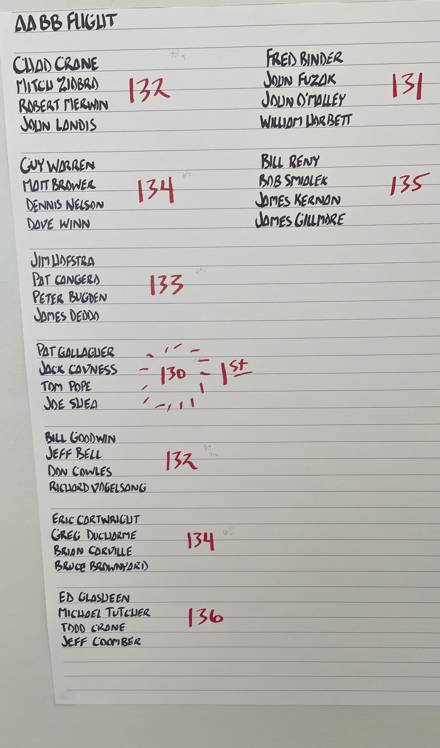 AABB FLIGHT
CHAD CRANE
MITCH ZIOBRO
ROBERT MERWIN
JOHN LANDIS
132
FRED BINDER
JOHN FUZAK
JOHN O'MALLEY
WILLIAM HARBETT
131
GUY WARREN
MATT BROWER
DENNIS NELSON
DAVE WINN
134
BILL RENY
BOB SMIALEK
JAMES KERNON
JAMES GILLMORE
135
JIM HOFSTRA
PAT CONGERO
PETER BUGDEN
JAMES DEDDO
133
PAT GALLAGHER
JACK CAVNESS
TOM POPE
JOE SHEA
130 = 1st
BILL GOODWIN
JEFF BELL
DON COWLES
RICHARD VOGELSONG
132
ERIC CARTWRIGHT
GREG DUCHARME
BRIAN CARVILLE
BRUCE BROWNYARD
134
ED GLASHEEN
MICHAEL TUTCHER
TODD CRANE
JEFF COOMBER
136